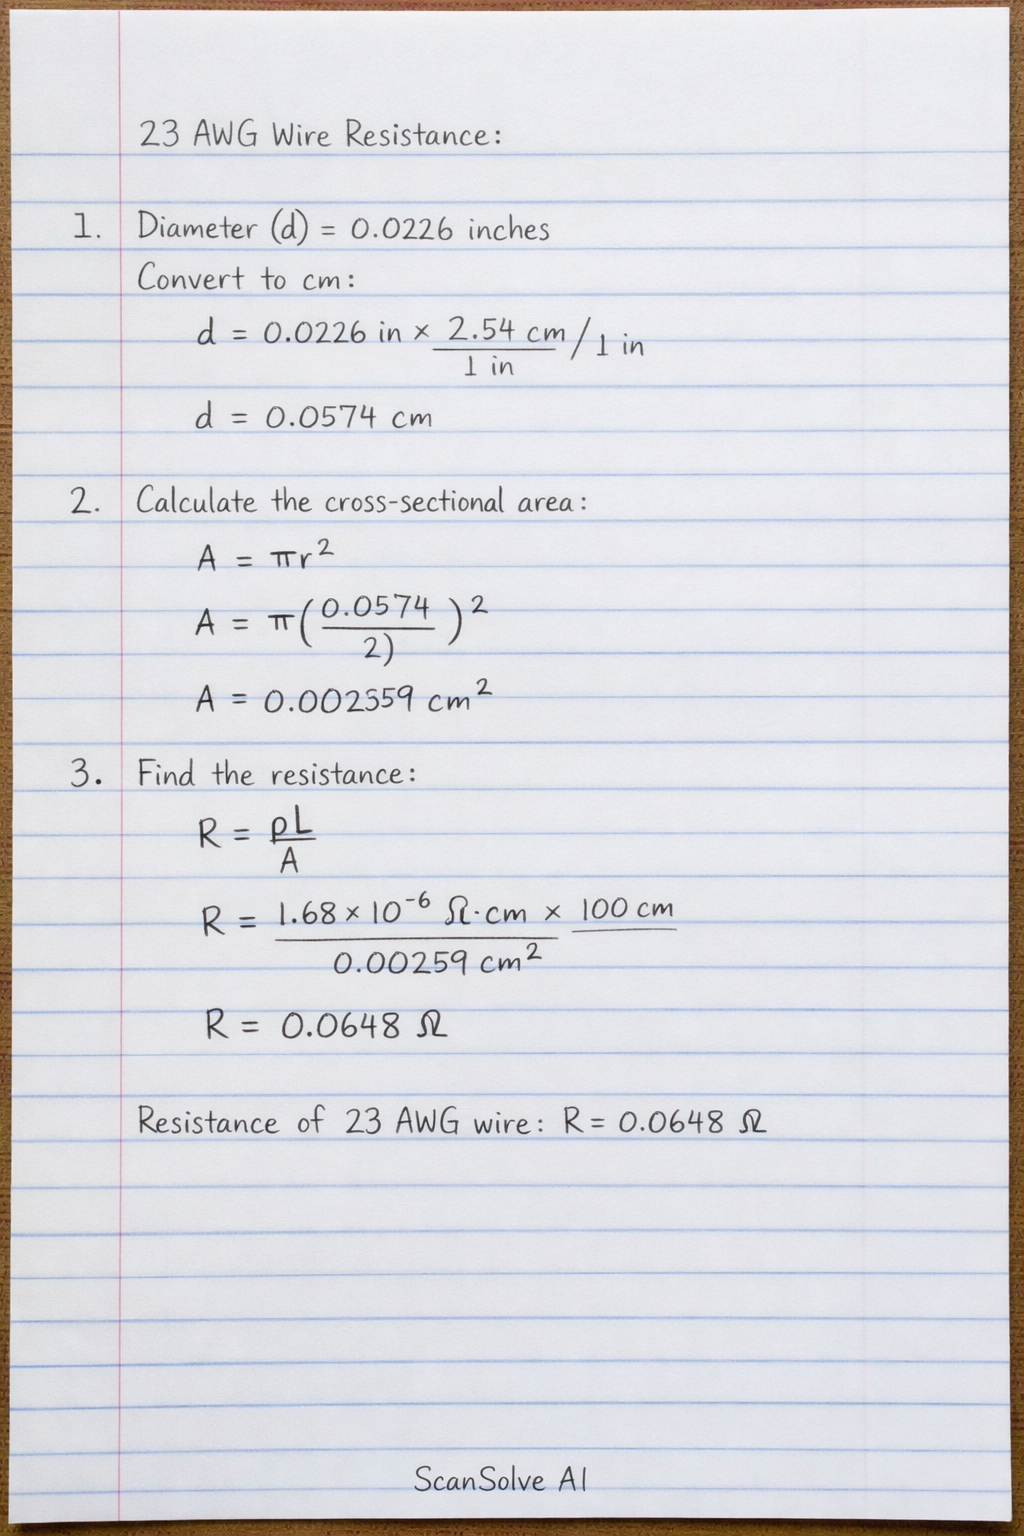 23 AWG Wire Resistance:
1. Diameter (d) = 0.0226 inches
Convert to cm:
d = 0.0226 in × 2.54 cm / 1 in
1 in
d = 0.0574 cm
2. Calculate the cross-sectional area:
A = πr²
A = π(0.0574)²
2)
A = 0.002559 cm²
3. Find the resistance:
R = ρL
A
R = 1.68 × 10⁻⁶ Ω·cm × 100 cm
0.00259 cm²
R = 0.0648 Ω
Resistance of 23 AWG wire: R = 0.0648 Ω
ScanSolve AI